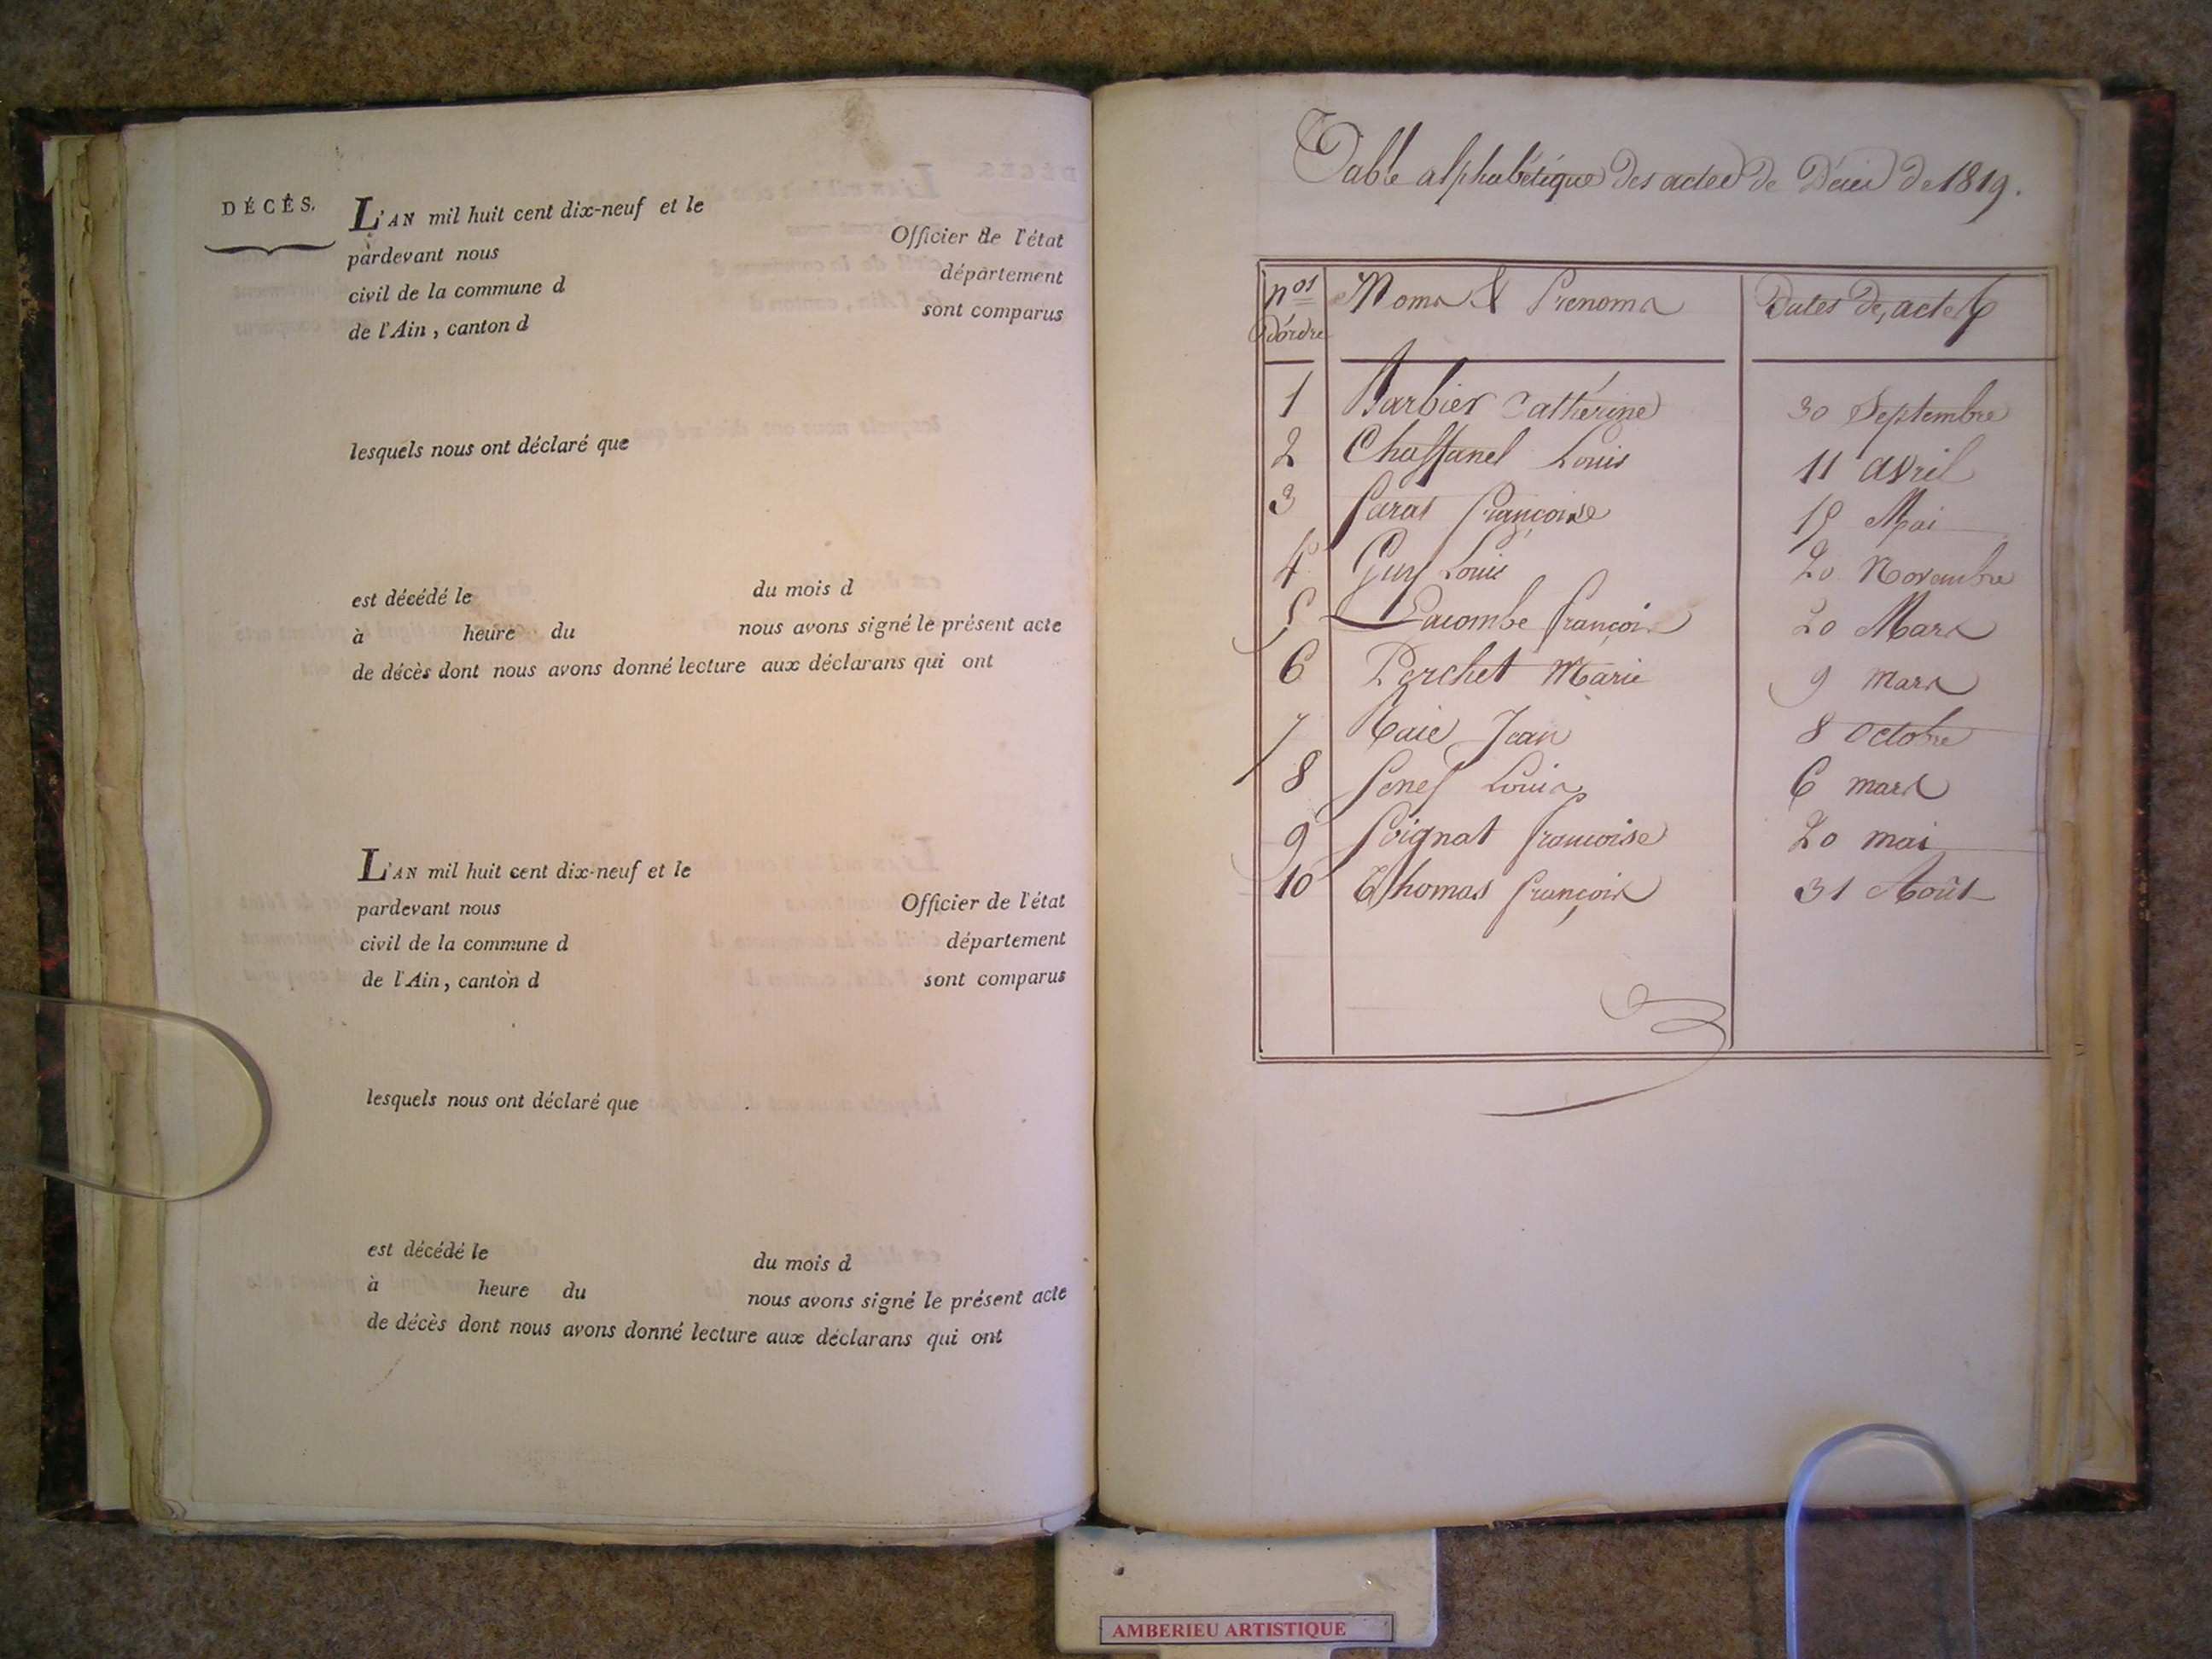 DÉCÈS.
L'AN mil huit cent dix-neuf et le
pardevant nous
Officier de l'état
civil de la commune d
département
de l'Ain, canton d
sont comparus
lesquels nous ont déclaré que
est décédé le
du mois d
à heure du
nous avons signé le présent acte
de décès dont nous avons donné lecture aux déclarans qui ont
L'AN mil huit cent dix-neuf et le
pardevant nous
Officier de l'état
civil de la commune d
département
de l'Ain, canton d
sont comparus
lesquels nous ont déclaré que
est décédé le
du mois d
à heure du
nous avons signé le présent acte
de décès dont nous avons donné lecture aux déclarans qui ont
Table alphabétique des actes de Décès de 1819.
nos d'ordre
Noms & Prenoms
Dates des actes
1 Barbier Catherine 30 Septembre
2 Chassanel Louis 11 avril
3 Françoise 15 Mai
4 Guy Louis 20 Novembre
5 Lacombe françois 20 Mars
6 Perchet Marie 9 mars
7 Jean 8 Octobre
8 Louis 6 mars
9 Soignat francoise 20 mai
10 Thomas françois 31 Août
AMBERIEU ARTISTIQUE